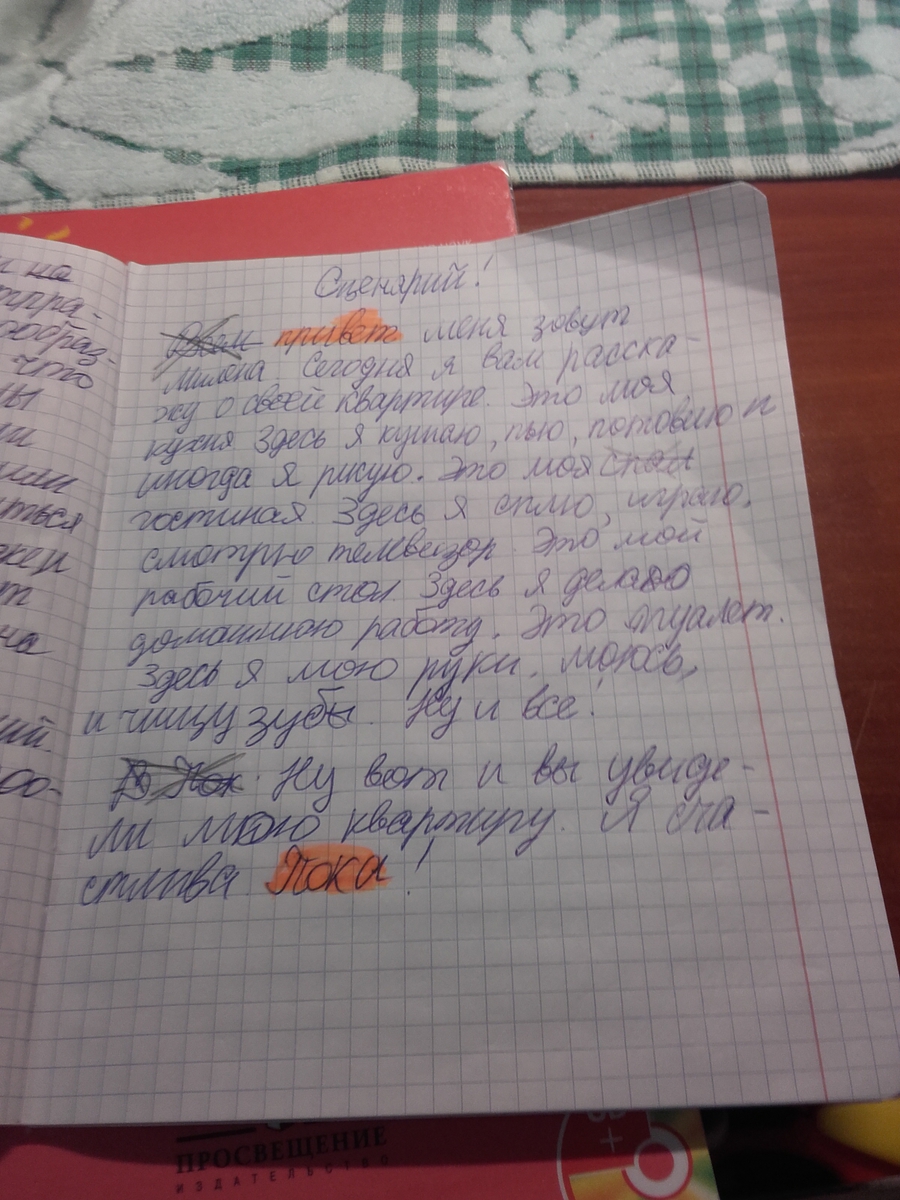 и на
Сценарий!
Всем привет меня зовут
Милана Сегодня я вам расска-
жу о своей квартире. Это моя
кухня Здесь я кушаю, пью, готовлю и
иногда я рисую. Это моя спал
гостиная. Здесь я сплю, играю,
смотрю телвезор. Это мой
рабочий стол. Здесь я делаю
домашнюю работу. Это туалет.
Здесь я мою руки, моюсь,
и чищу зубы. Ну и все!
В Пок Ну вот и вы увиде-
ли мою квартиру. Я сча-
стлива Пока!
что
ться
на
ПРОСВЕЩЕНИЕ
ИЗДАТЕЛЬСТВО